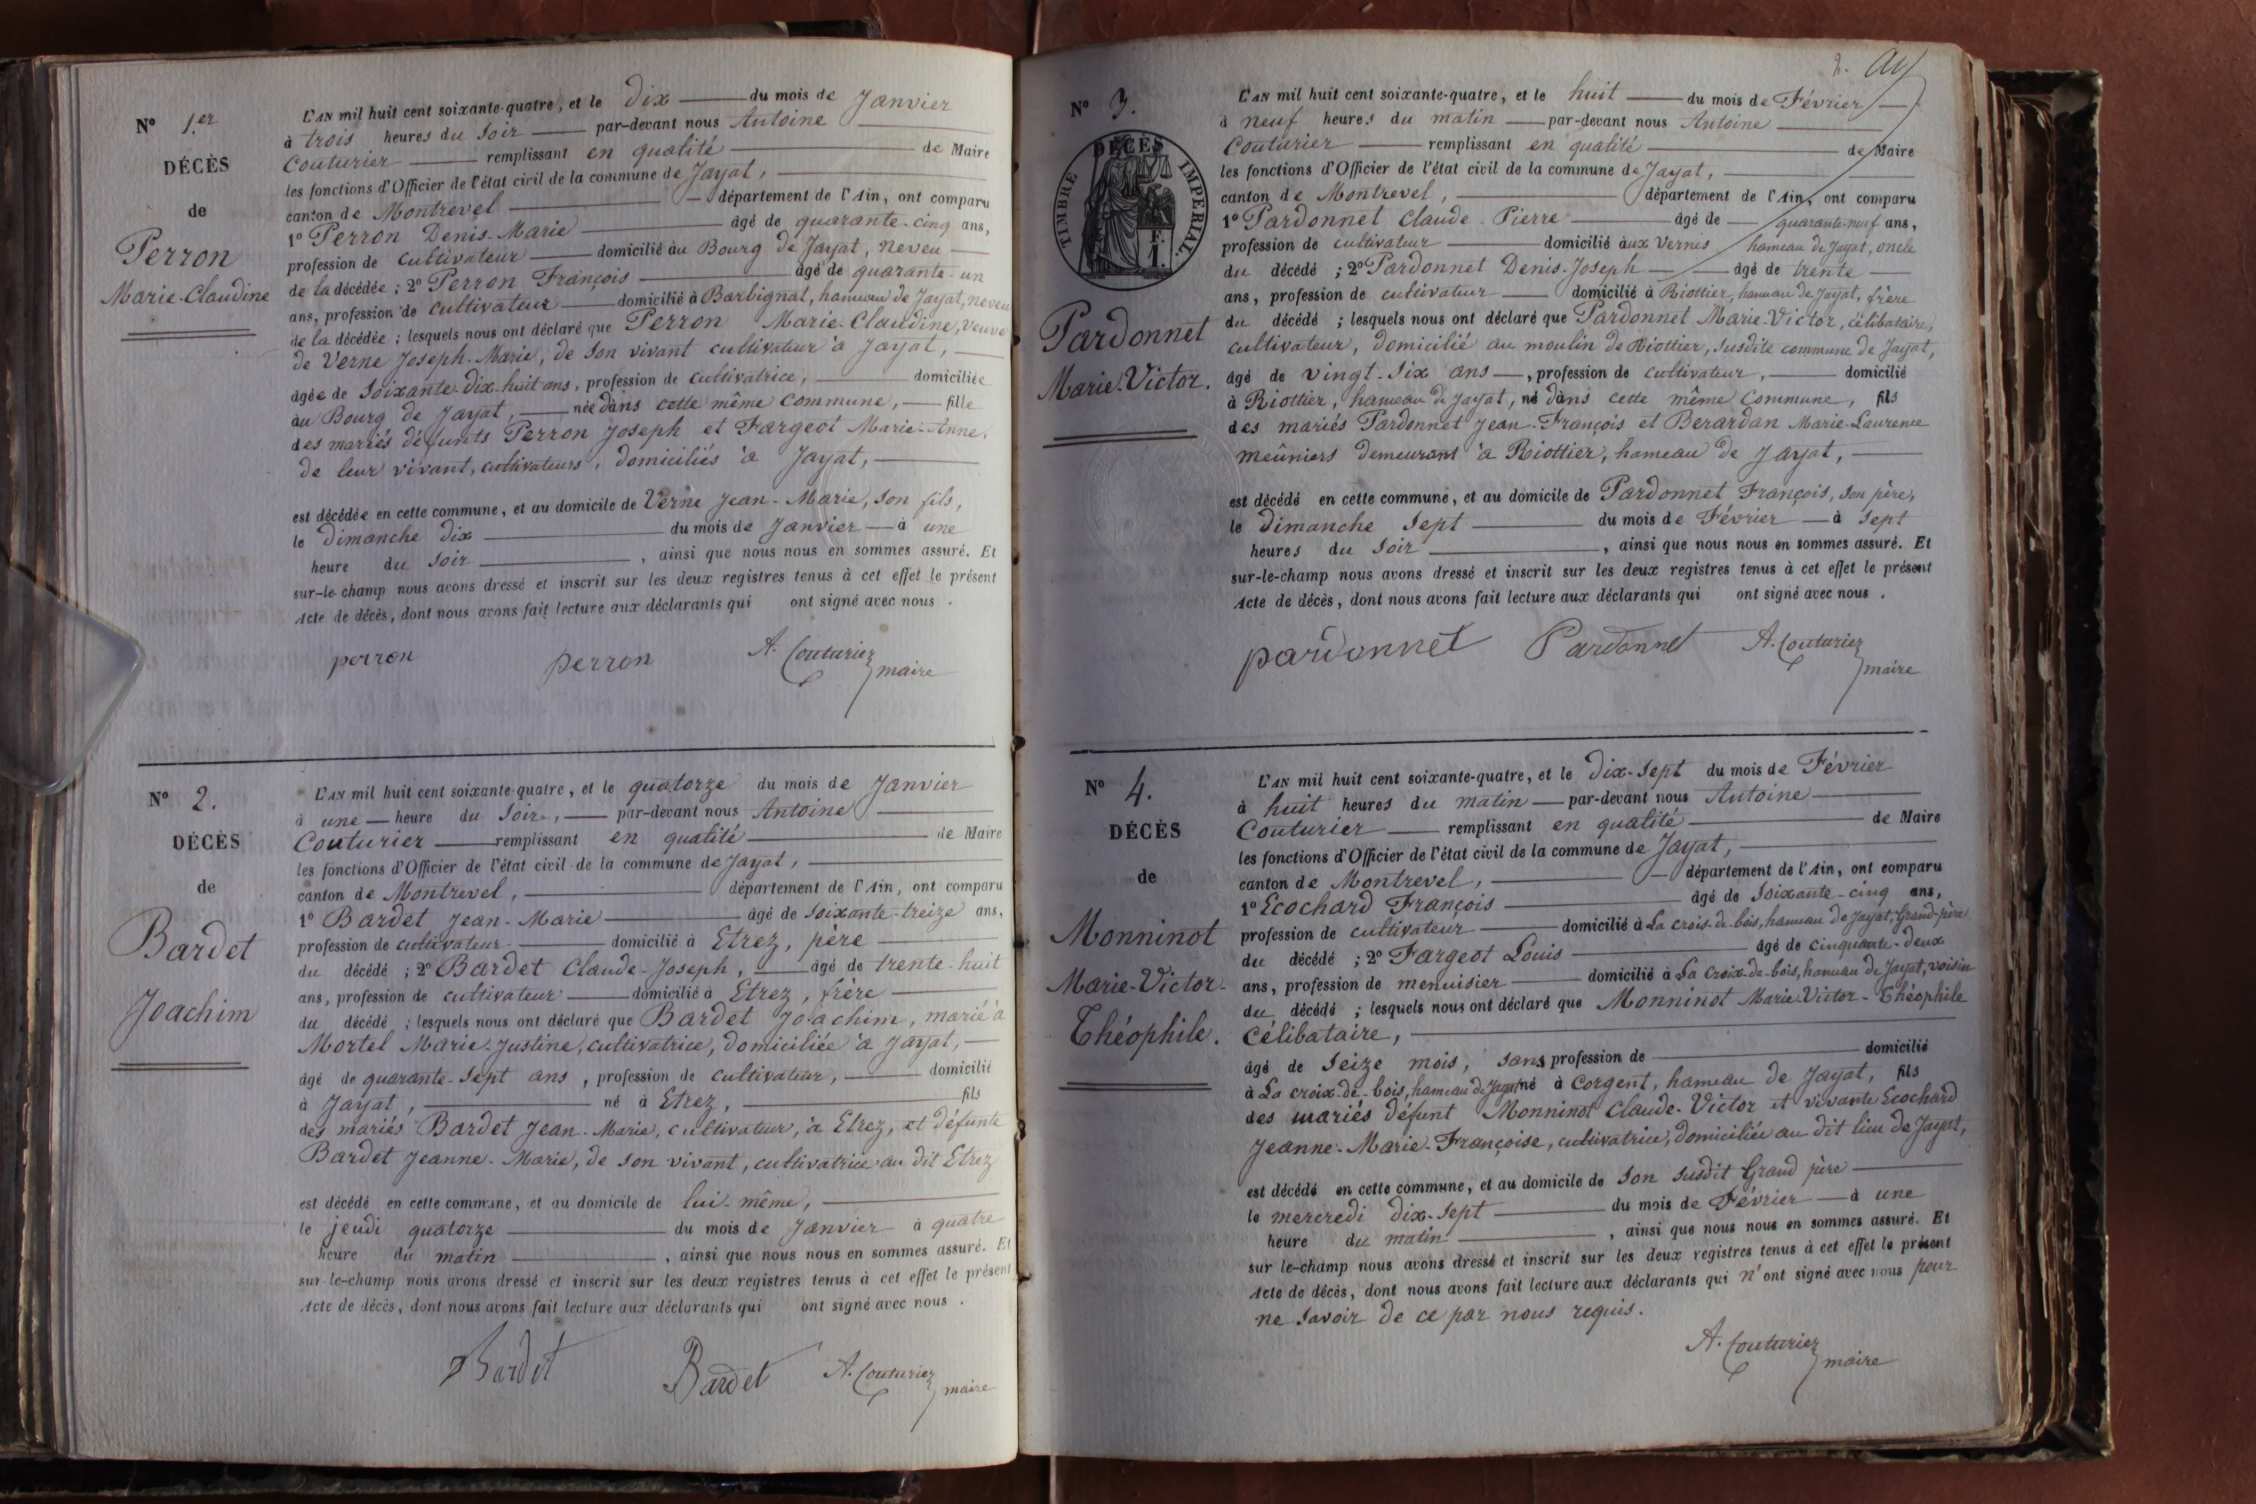 N° 1.er
DÉCÈS
de
Perron
Marie-Claudine
L'AN mil huit cent soixante-quatre, et le dix du mois de Janvier
à trois heures du soir par-devant nous Antoine
Couturier remplissant en qualité de Maire
les fonctions d'Officier de l'état civil de la commune de Jayat,
canton de Montrevel département de l'Ain, ont comparu
1° Perron Denis-Marie âgé de quarante-cinq ans,
profession de cultivateur domicilié au Bourg de Jayat, neveu
de la décédée ; 2° Perron François âgé de quarante-un
ans, profession de cultivateur domicilié à Barbignat, hameau de Jayat, neveu
de la décédée ; lesquels nous ont déclaré que Perron Marie-Claudine, veuve
de Verne Joseph-Marie, de son vivant cultivateur à Jayat,
âgée de soixante-dix-huit ans, profession de cultivatrice, domiciliée
au Bourg de Jayat, née dans cette même commune, fille
des mariés défunts Perron Joseph et Fargeot Marie-Anne,
de leur vivant, cultivateurs, domiciliés à Jayat,
est décédée en cette commune, et au domicile de Verne Jean-Marie, son fils,
le dimanche dix du mois de Janvier à une
heure du soir, ainsi que nous nous en sommes assuré. Et
sur-le-champ nous avons dressé et inscrit sur les deux registres tenus à cet effet le présent
Acte de décès, dont nous avons fait lecture aux déclarants qui ont signé avec nous.
perron perron A. Couturier
maire
N° 2.
DÉCÈS
de
Bardet
Joachim
L'AN mil huit cent soixante-quatre, et le quatorze du mois de Janvier
à une heure du soir, par-devant nous Antoine
Couturier remplissant en qualité de Maire
les fonctions d'Officier de l'état civil de la commune de Jayat,
canton de Montrevel, département de l'Ain, ont comparu
1° Bardet Jean-Marie âgé de soixante-treize ans,
profession de cultivateur domicilié à Etrez, père
du décédé ; 2° Bardet Claude-Joseph, âgé de trente-huit
ans, profession de cultivateur domicilié à Etrez, frère
du décédé ; lesquels nous ont déclaré que Bardet Joachim, marié à
Mortel Marie-Justine, cultivatrice, domiciliée à Jayat,
âgé de quarante-sept ans, profession de cultivateur, domicilié
à Jayat, né à Etrez, fils
des mariés Bardet Jean-Marie, cultivateur, à Etrez, et défunte
Bardet Jeanne-Marie, de son vivant, cultivatrice au dit Etrez
est décédé en cette commune, et au domicile de lui-même,
le jeudi quatorze du mois de Janvier à quatre
heure du matin, ainsi que nous nous en sommes assuré. Et
sur-le-champ nous avons dressé et inscrit sur les deux registres tenus à cet effet le présent
Acte de décès, dont nous avons fait lecture aux déclarants qui ont signé avec nous.
Bardet Bardet A. Couturier
maire
2.
N° 3.
DÉCÈS
TIMBRE IMPERIAL.
1 F.
Pardonnet
Marie-Victor.
L'AN mil huit cent soixante-quatre, et le huit du mois de Février
à neuf heures du matin par-devant nous Antoine
Couturier remplissant en qualité de Maire
les fonctions d'Officier de l'état civil de la commune de Jayat,
canton de Montrevel, département de l'Ain, ont comparu
1° Pardonnet Claude-Pierre âgé de quarante-neuf ans,
profession de cultivateur domicilié aux Vernes hameau de Jayat, oncle
du décédé ; 2° Pardonnet Denis-Joseph âgé de trente
ans, profession de cultivateur domicilié à Riottier, hameau de Jayat, frère
du décédé ; lesquels nous ont déclaré que Pardonnet Marie-Victor, célibataire,
cultivateur, domicilié au moulin de Riottier, susdite commune de Jayat,
âgé de vingt-six ans, profession de cultivateur, domicilié
à Riottier, hameau de Jayat, né dans cette même commune, fils
des mariés Pardonnet Jean-François et Berardan Marie-Laurence
meûniers demeurans à Riottier, hameau de Jayat,
est décédé en cette commune, et au domicile de Pardonnet François, son père,
le dimanche sept du mois de Février à sept
heures du soir, ainsi que nous nous en sommes assuré. Et
sur-le-champ nous avons dressé et inscrit sur les deux registres tenus à cet effet le présent
Acte de décès, dont nous avons fait lecture aux déclarants qui ont signé avec nous.
pardonnet Pardonnet A. Couturier
maire
N° 4.
DÉCÈS
de
Monninot
Marie-Victor-
Théophile.
L'AN mil huit cent soixante-quatre, et le dix-sept du mois de Février
à huit heures du matin par-devant nous Antoine
Couturier remplissant en qualité de Maire
les fonctions d'Officier de l'état civil de la commune de Jayat,
canton de Montrevel, département de l'Ain, ont comparu
1° Ecochard François âgé de soixante-cinq ans,
profession de cultivateur domicilié à La croix-de-bois, hameau de Jayat, Grand-père
du décédé ; 2° Fargeot Louis âgé de cinquante-deux
ans, profession de menuisier domicilié à La Croix-de-bois, hameau de Jayat, voisin
du décédé ; lesquels nous ont déclaré que Monninot Marie Victor-Théophile
célibataire,
âgé de seize mois, sans profession de domicilié
à La croix-de-bois, hameau de Jayat né à Corgent, hameau de Jayat, fils
des mariés défunt Monninot Claude-Victor et vivante Ecochard
Jeanne-Marie-Françoise, cultivatrice, domiciliée au dit lieu de Jayat,
est décédé en cette commune, et au domicile de son susdit Grand père
le mercredi dix-sept du mois de Février à une
heure du matin, ainsi que nous nous en sommes assuré. Et
sur le-champ nous avons dressé et inscrit sur les deux registres tenus à cet effet le présent
Acte de décès, dont nous avons fait lecture aux déclarants qui n'ont signé avec nous pour
ne savoir de ce par nous requis.
A. Couturier
maire